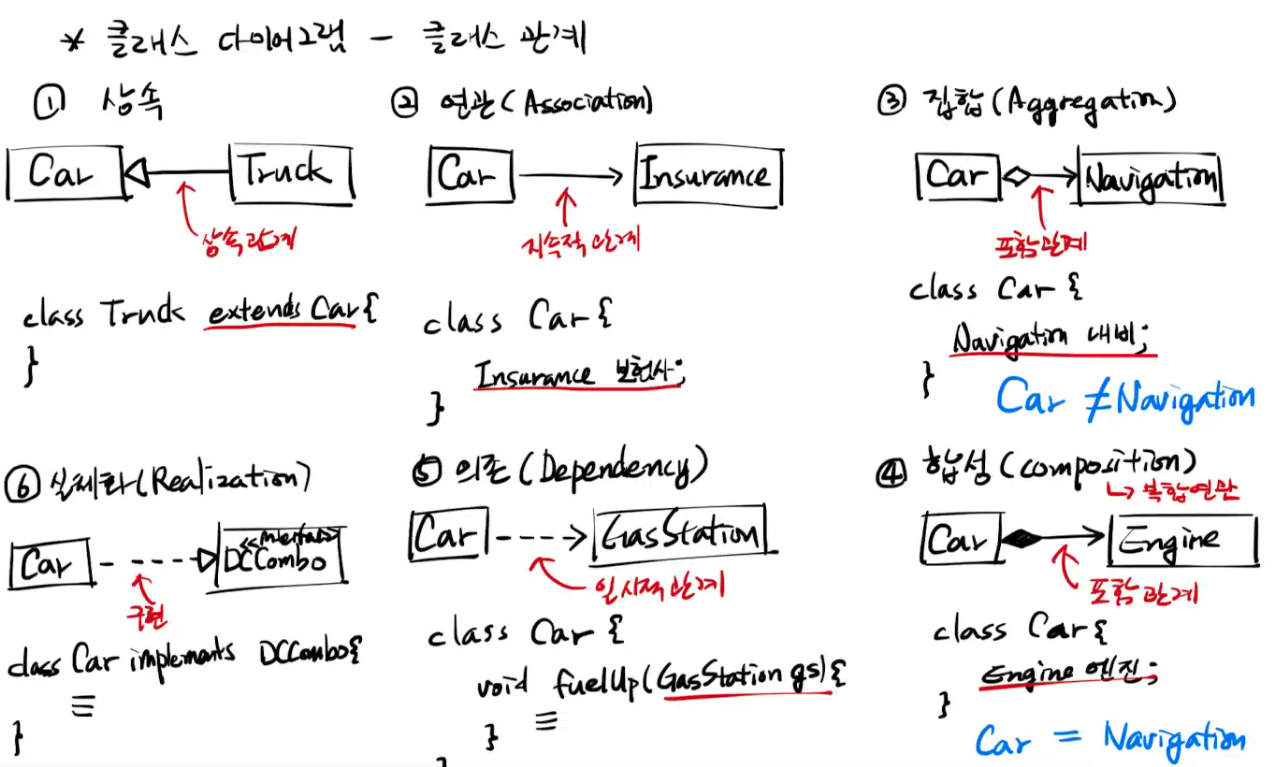 * 클래스 다이어그램 - 클래스 관계
① 상속
Car
Truck
상속관계
class Truck extends Car {
}
② 연관 (Association)
Car
Insurance
지속적 관계
class Car {
Insurance 보험사;
}
③ 집합 (Aggregation)
Car
Navigation
포함관계
class Car {
Navigation 내비;
}
Car ≠ Navigation
⑥ 실체화 (Realization)
Car
<<interface>>
DCCombo
구현
class Car implements DCCombo {
}
⑤ 의존 (Dependency)
Car
GasStation
일시적 관계
class Car {
void fuelUp(GasStation gs) {
}
}
④ 합성 (composition)
↳ 복합연관
Car
Engine
포함 관계
class Car {
Engine 엔진;
}
Car = Navigation